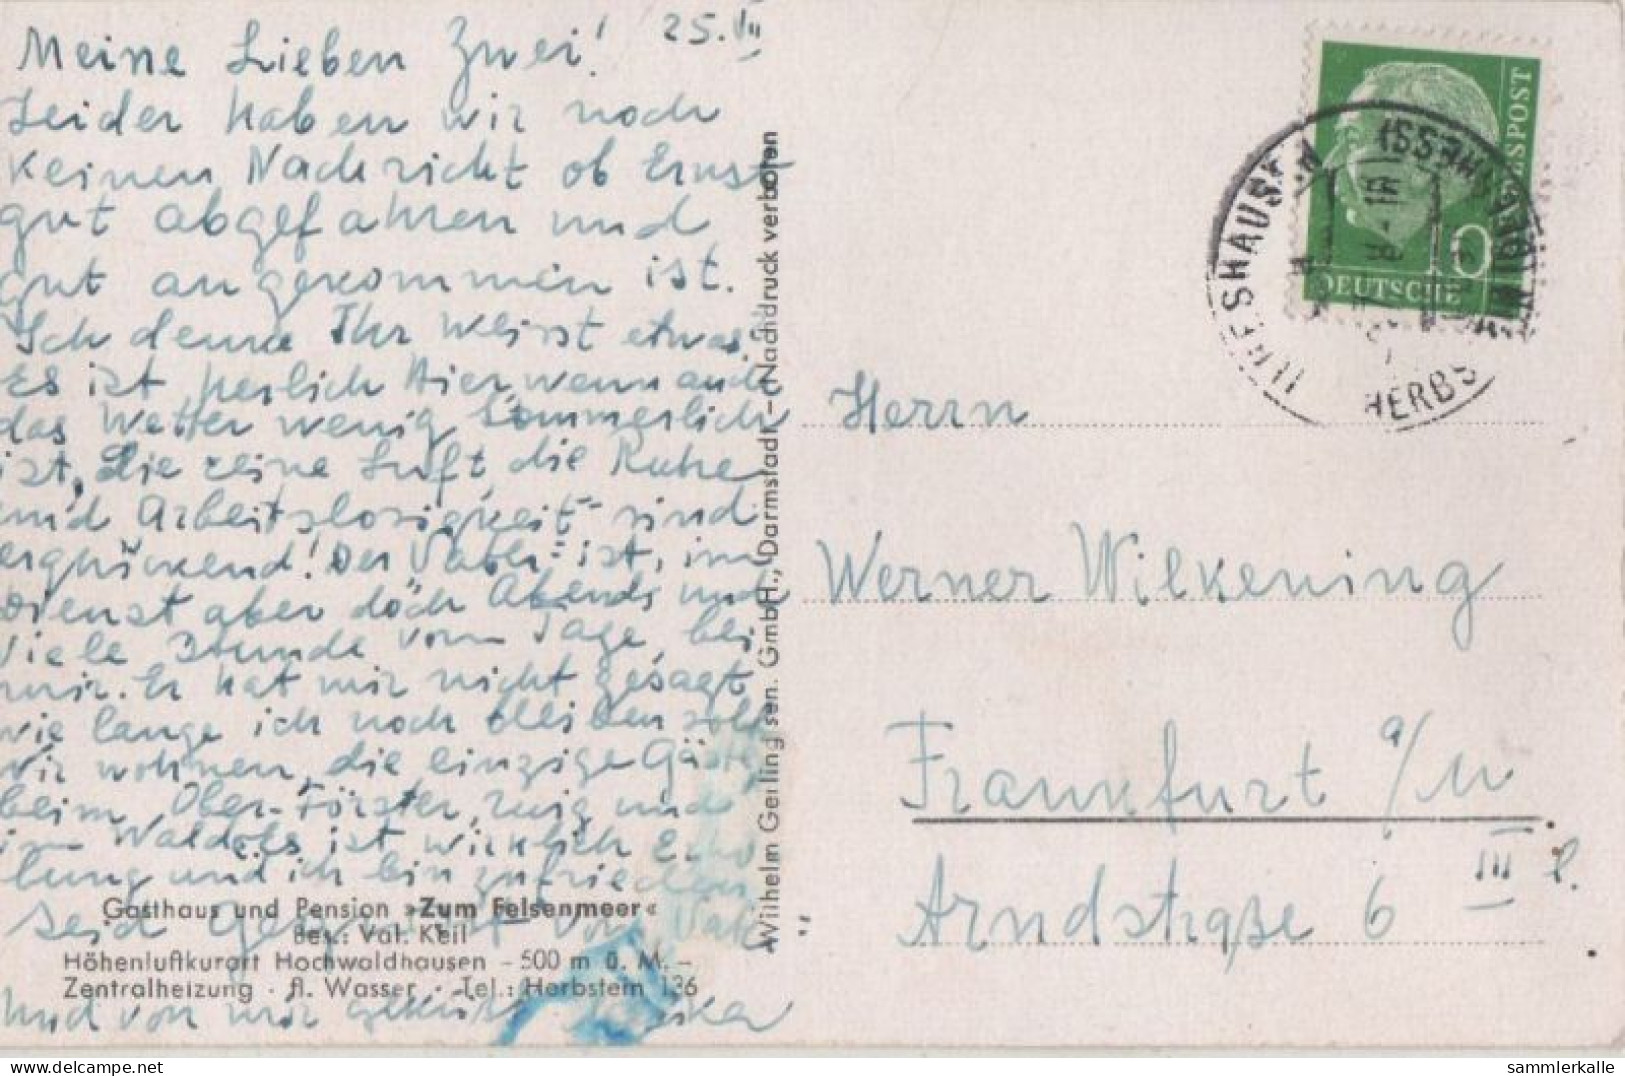 25. VII
Meine Lieben Zwei!
Leider haben wir noch
keinen Nachricht ob Ernst
gut abgefahren und
gut angekommen ist.
Ich denke Ihr Weisst etwas.
Es ist herlich Hier wenn auch
das Wetter wenig Sommerlich
ist, die reine Luft, die Ruhe
und Arbeitslosigkeit sind
erquickend! Der Vater ist, im
Dienst aber doch Abends und
viele Stunde vom Tage, bei
mir. Er hat mir nicht gesagt
wie lange ich noch bleiben soll
wir wohnen, die einzige Gäste,
beim Ober-Förster, ruig und
im Wald. Es ist wirklich Erho
lung und ich bin zufrieden
Seid von Vater
Und von mir geküsst
Gasthaus und Pension »Zum Felsenmeer«
Bes.: Val. Keil
Höhenluftkurort Hochwaldhausen – 500 m ü. M. –
Zentralheizung · fl. Wasser · Tel.: Herbstein 136
Wilhelm Gerling sen. GmbH., Darmstadt – Nachdruck verboten
DEUTSCHE BUNDESPOST
10
ILBESHAUSEN
(HESS)
HERBS
Herrn
Werner Wilkening
Frankfurt a/M
Arndstraße 6 III l.
sammlerkalle